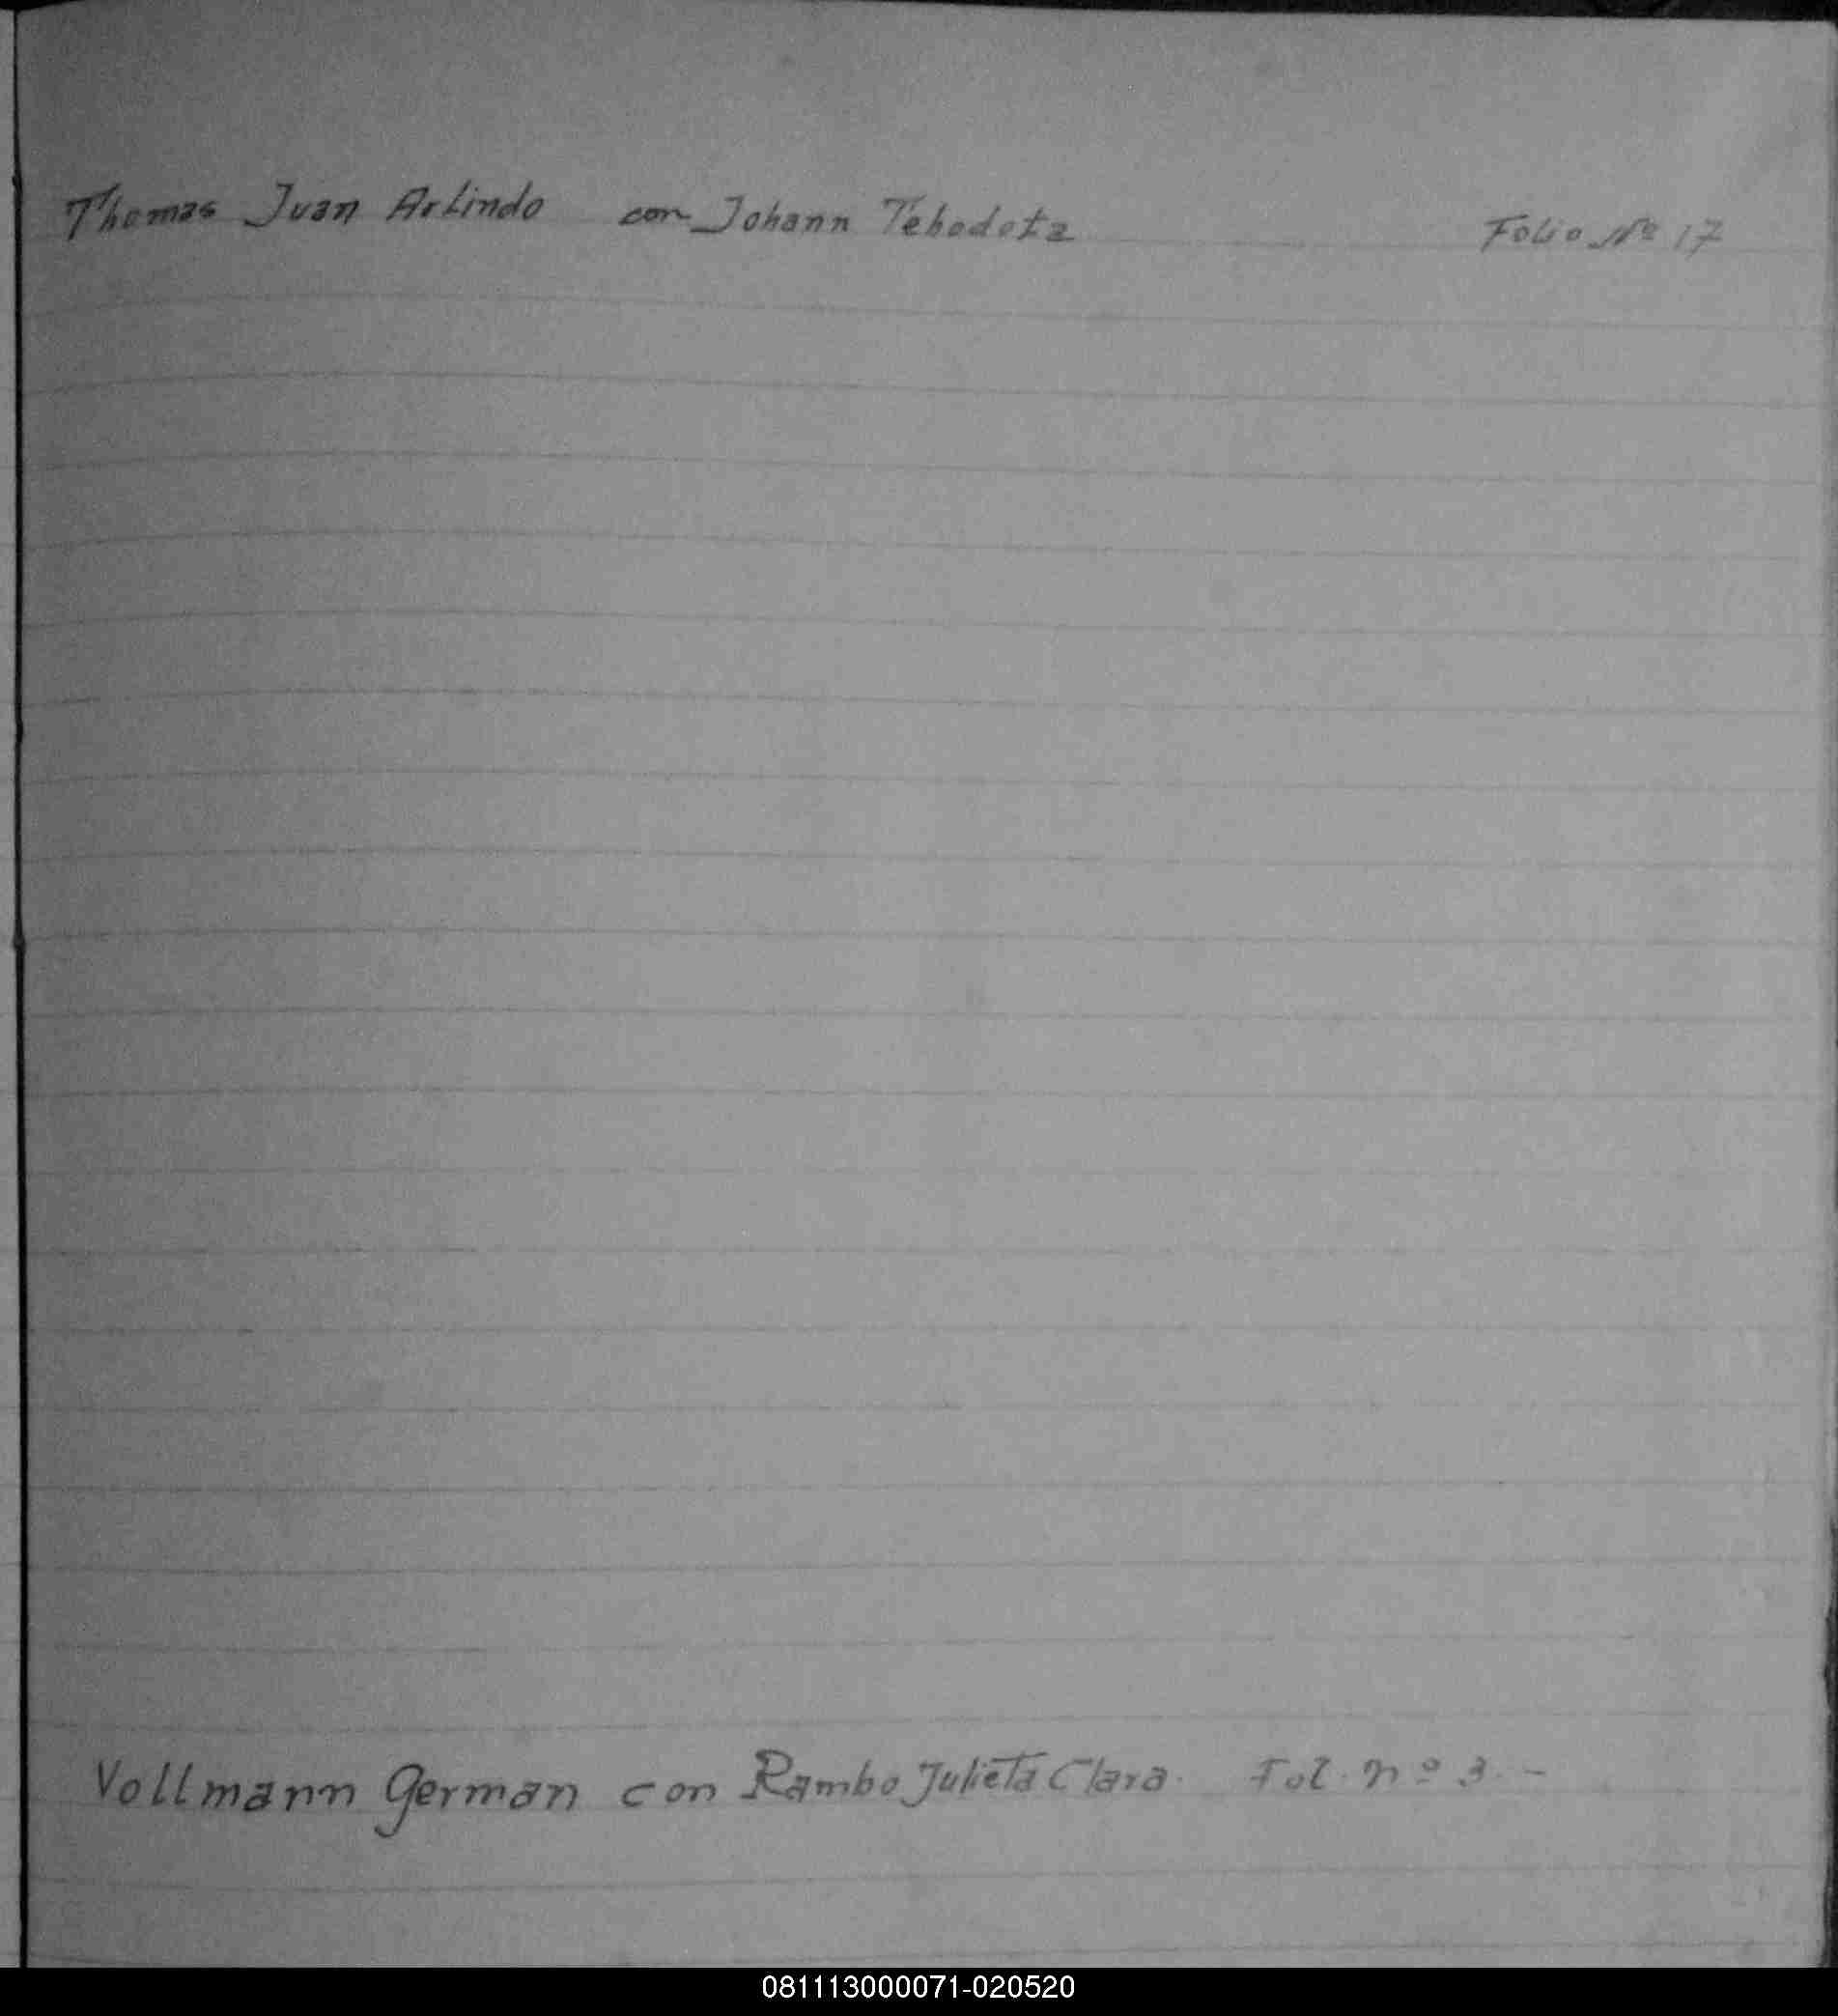 Thomas Juan Arlindo con Johann Tehodota Folio Nº 17
Vollmann German con Rambo Julieta Clara. Fol. nº 3. -
081113000071-020520